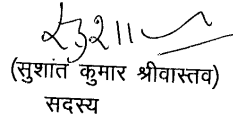 (सुशांत कुमार श्रीवास्तव)
सदस्य